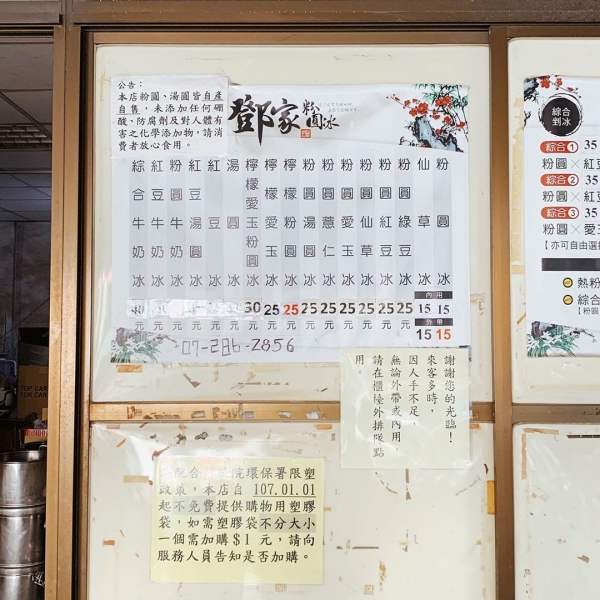 公告：
本店粉圓、湯圓皆自產
自售，未添加任何硼
酸、防腐劑及對人體有
害之化學添加物，請消
費者放心食用。
鄧家
粉圓冰
粉圓冰 內用15元 外帶15
仙草冰 15元 15
粉圓綠豆冰 25元
粉圓紅豆冰 25元
粉圓仙草冰 25元
粉圓愛玉冰 25元
粉圓薏仁冰 25元
粉圓湯圓冰 25元
檸檬粉圓冰 25元
檸檬愛玉冰 25元
檸檬愛玉粉圓冰 30元
湯圓冰 元
紅豆冰 元
紅豆湯圓冰 元
粉圓牛奶冰 元
紅豆牛奶冰 元
綜合牛奶冰 元
07-286-2856
謝謝您的光臨！
來客多時，
因人手不足，
無論外帶或內用，
請在櫃檯外排隊點
用。
配合 院環保署限塑
政策，本店自 107.01.01
起不免費提供購物用塑膠
袋，如需塑膠袋不分大小
一個需加購$1元，請向
服務人員告知是否加購。
綜合
剉冰
綜合1 35
粉圓×紅豆
綜合2 35
粉圓×紅豆
綜合3 35
粉圓×愛玉
【亦可自由選
熱粉
綜合
【粉圓